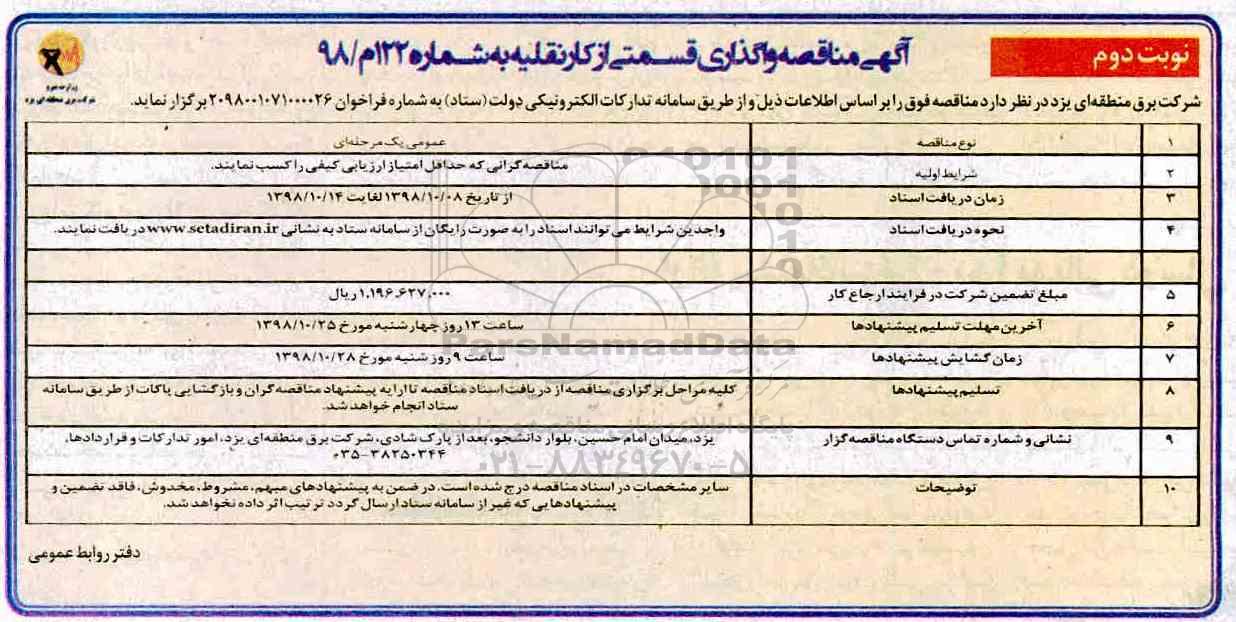 نوبت دوم
آگهی مناقصه واگذاری قسمتی از کار نقلیه به شماره ۱۲۲م/۹۸
وزارت نیرو
شرکت برق منطقه ای یزد
شرکت برق منطقه‌ای یزد در نظر دارد مناقصه فوق را بر اساس اطلاعات ذیل و از طریق سامانه تدارکات الکترونیکی دولت (ستاد) به شماره فراخوان ۲۰۹۸۰۰۱۰۷۱۰۰۰۰۲۶ برگزار نماید.
۱ نوع مناقصه عمومی یک مرحله‌ای
۲ شرایط اولیه مناقصه گرانی که حداقل امتیاز ارزیابی کیفی را کسب نمایند.
۳ زمان دریافت اسناد از تاریخ ۱۳۹۸/۱۰/۰۸ لغایت ۱۳۹۸/۱۰/۱۴
۴ نحوه دریافت اسناد واجدین شرایط می توانند اسناد را به صورت رایگان از سامانه ستاد به نشانی www.setadiran.ir دریافت نمایند.
۵ مبلغ تضمین شرکت در فرایند ارجاع کار ۱.۱۹۶.۶۲۷.۰۰۰ ریال
۶ آخرین مهلت تسلیم پیشنهادها ساعت ۱۳ روز چهارشنبه مورخ ۱۳۹۸/۱۰/۲۵
۷ زمان گشایش پیشنهادها ساعت ۹ روز شنبه مورخ ۱۳۹۸/۱۰/۲۸
۸ تسلیم پیشنهادها کلیه مراحل برگزاری مناقصه از دریافت اسناد مناقصه تا ارایه پیشنهاد مناقصه گران و بازگشایی پاکات از طریق سامانه
ستاد انجام خواهد شد.
۹ نشانی و شماره تماس دستگاه مناقصه گزار یزد، میدان امام حسین، بلوار دانشجو، بعد از پارک شادی، شرکت برق منطقه‌ای یزد، امور تدارکات و قراردادها.
۰۳۵-۳۸۲۵۰۳۴۴
۱۰ توضیحات سایر مشخصات در اسناد مناقصه درج شده است. در ضمن به پیشنهادهای مبهم، مشروط، مخدوش، فاقد تضمین و
پیشنهادهایی که غیر از سامانه ستاد ارسال گردد ترتیب اثر داده نخواهد شد.
دفتر روابط عمومی
ParsNamadData
پایگاه اطلاع رسانی مناقصه و مزایده
۰۲۱-۸۸۳۴۹۶۷۰-۵